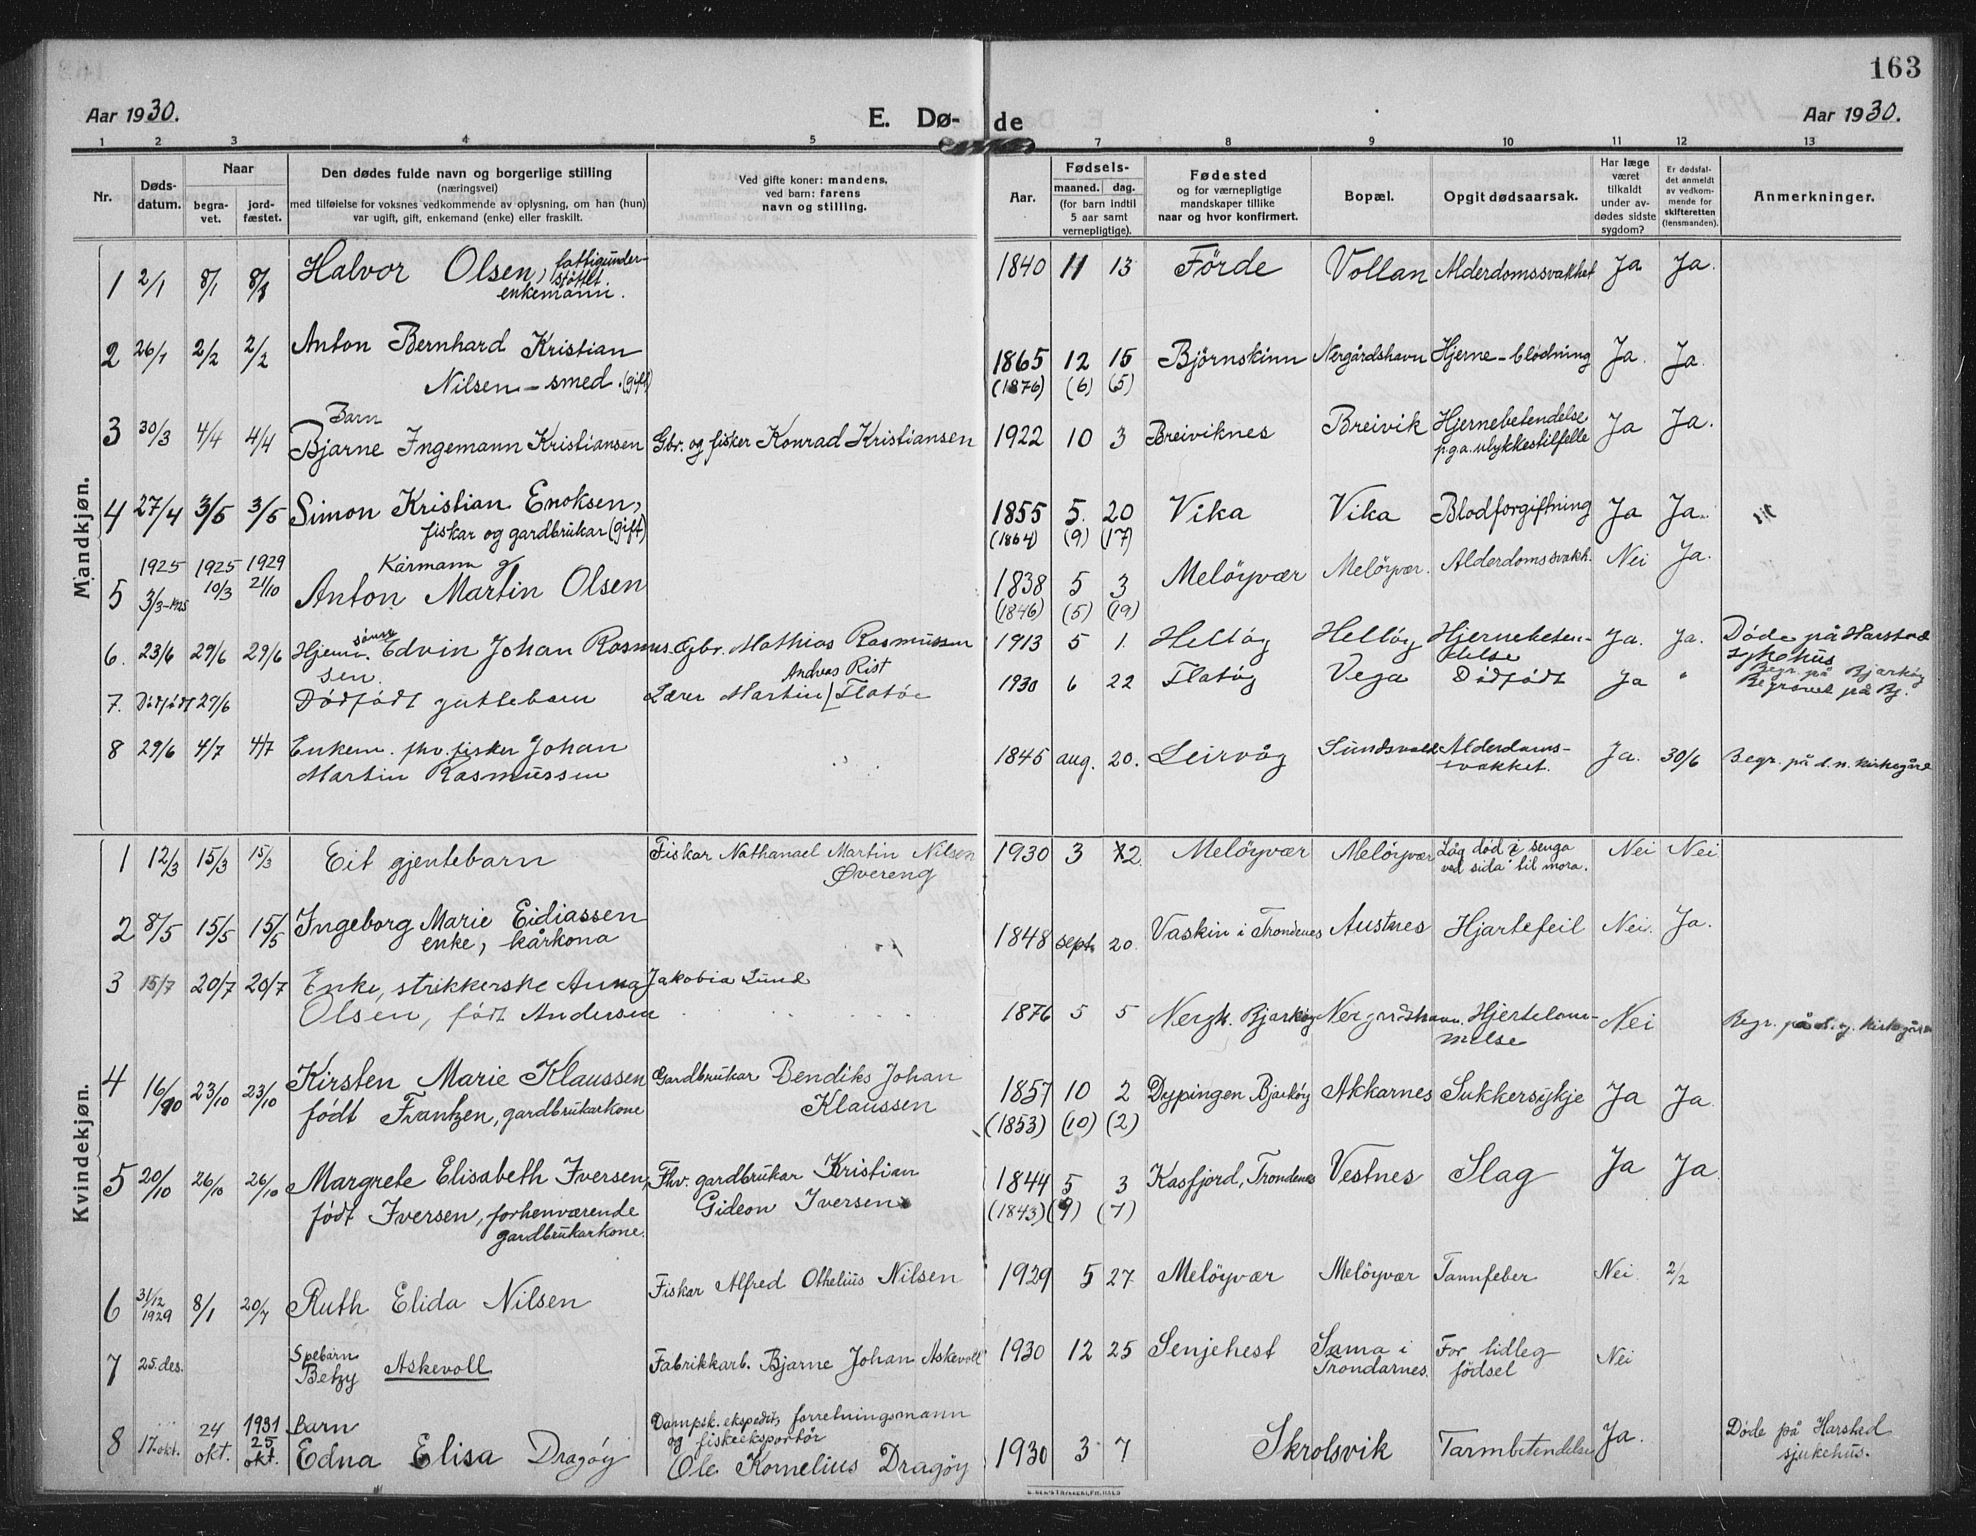 163
Aar 1930.
E. Dø- de
Aar 1930.
1 2 3 4 5 7 8 9 10 11 12 13
Nr.
Døds-
datum.
Naar
begra-
vet.
jord-
fæstet.
Den dødes fulde navn og borgerlige stilling
(næringsvei)
med tilføielse for voksnes vedkommende av oplysning, om han (hun)
var ugift, gift, enkemand (enke) eller fraskilt.
Ved gifte koner: mandens,
ved barn: farens
navn og stilling.
Aar.
Fødsels-
maaned. dag.
(for barn indtil
5 aar samt
vernepligtige).
Fødested
og for værnepligtige
mandskaper tillike
naar og hvor konfirmert.
Bopæl.
Opgit dødsaarsak.
Har læge
været
tilkaldt
under av-
dødes sidste
sygdom?
Er dødsfal-
det anmeldt
av vedkom-
mende for
skifteretten
(lensmanden).
Anmerkninger.
Mandkjøn.
1 2/1 8/1 8/1 Halvor Olsen, fattigunder-
støttet
enkemann.
1840 11 13 Förde Vollan Alderdomssvakhet Ja Ja.
2 26/1 2/2 2/2 Anton Bernhard Kristian
Nilsen - smed. (gift)
1865 12 15 Björnskinn Nergårdshavn Hjerne-blödning Ja. Ja.
(1876) (6) (5)
Barn
3 30/3 4/4 4/4 Bjarne Ingemann Kristiansen Gbr. og fisker Konrad Kristiansen
1922 10 3 Breiviknes Breivik Hjernebetendelse
p.g.a. ulykkestilfelle Ja Ja.
4 27/4 3/5 3/5 Simon Kristian Enoksen,
fiskar og gardbrukar (gift)
1855 5. 20 Vika Vika Blodforgiftning Ja Ja.
(1864) (9) (17)
1925 1925 1929 Kårmann
5 3/3-1925 10/3 21/10 Anton Martin Olsen
1838 5 3 Meløyvær Meløyvær. Alderdomssvakh. Nei Ja.
(1846) (5) (19)
6. 23/6 29/6 29/6 Hjemm. sønn Edvin Johan Rasmus-
sen. Gbr. Mathias Rasmussen
1913 5 1. Helløy Helløy Hjernebeten-
delse Ja. Ja. Døde på Harstad
sykehus
Begr. på Bjarkøy
7. Dødfødt 29/6 Dødfødt guttebarn Lærer Martin Andreas Rist Flatøe
1930 6 22 Flatøy Vega Dødfødt Ja " Begravet på Bj.
8 29/6 4/7 4/7 Enkem. fhv. fisker Johan
Martin Rasmussen
1845 aug. 20. Leirvåg Sundsvoll Alderdoms-
svakket. Ja. 30/6 Begr. på d.n. kirkegård
Kvindekjøn.
1 12/3 15/3 15/3 Eit gjentebarn Fiskar Nathanael Martin Nilsen
Øvereng
1930 3 12. Meløyvær Meløyvær Låg død i senga
ved sida til mora. Nei Nei
2 8/5 15/5 15/5 Ingeborg Marie Eidiassen
enke, kårkona
1848 sept. 20. Vaskin i Trondenes Austnes Hjartefeil Nei. Ja.
3 15/7 20/7 20/7 Enke, strikkerske Anna Jakobia Lund
Olsen, født Andersen
1876 5 5 Nergh. Bjarkøy Nergrdshavn. Hjertelam-
melse Nei Begr. på d. g. kirkegård
4 16/10 23/10 23/10 Kirsten Marie Klaussen
født Frantzen, gardbrukarkone
Gardbrukar Bendiks Johan
Klaussen
1857 10 2 Dypingen Bjarkøy Akkarnes Sukkersykje Ja Ja.
(1853) (10) (2)
5 20/10 26/10 26/10 Margrete Elisabeth Iversen,
født Iversen, forhenværende
gardbrukarkone.
Fhv. gardbrukar Kristian
Gideon Iversen
1844 5 3 Kasfjord, Trondenes Vestnes Slag Ja Ja.
(1843) (9) (7)
6 31/12
1929 8/1 20/7 Ruth Elida Nilsen Fiskar Alfred Othelius Nilsen
1929 5 27 Meløyvær Meløyvær Tannfeber Nei. 2/2
7 25. des. Spebarn
Betzy Askevoll Fabrikkarb. Bjarne Johan Askevoll
1930 12 25 Senjehest Sama i
Trondarnes. For tidleg
fødsel Nei
8 17. okt. 24
okt. 1931
25
okt. Barn
Edna Elisa Dragøy
Dampsk. ekspedit, forretningsmann
og fiskeeksportør
Ole Kornelius Dragøy
1930 3 7 Skrolsvik Tarmbetendelse Ja. Døde på Harstad
sjukehus.